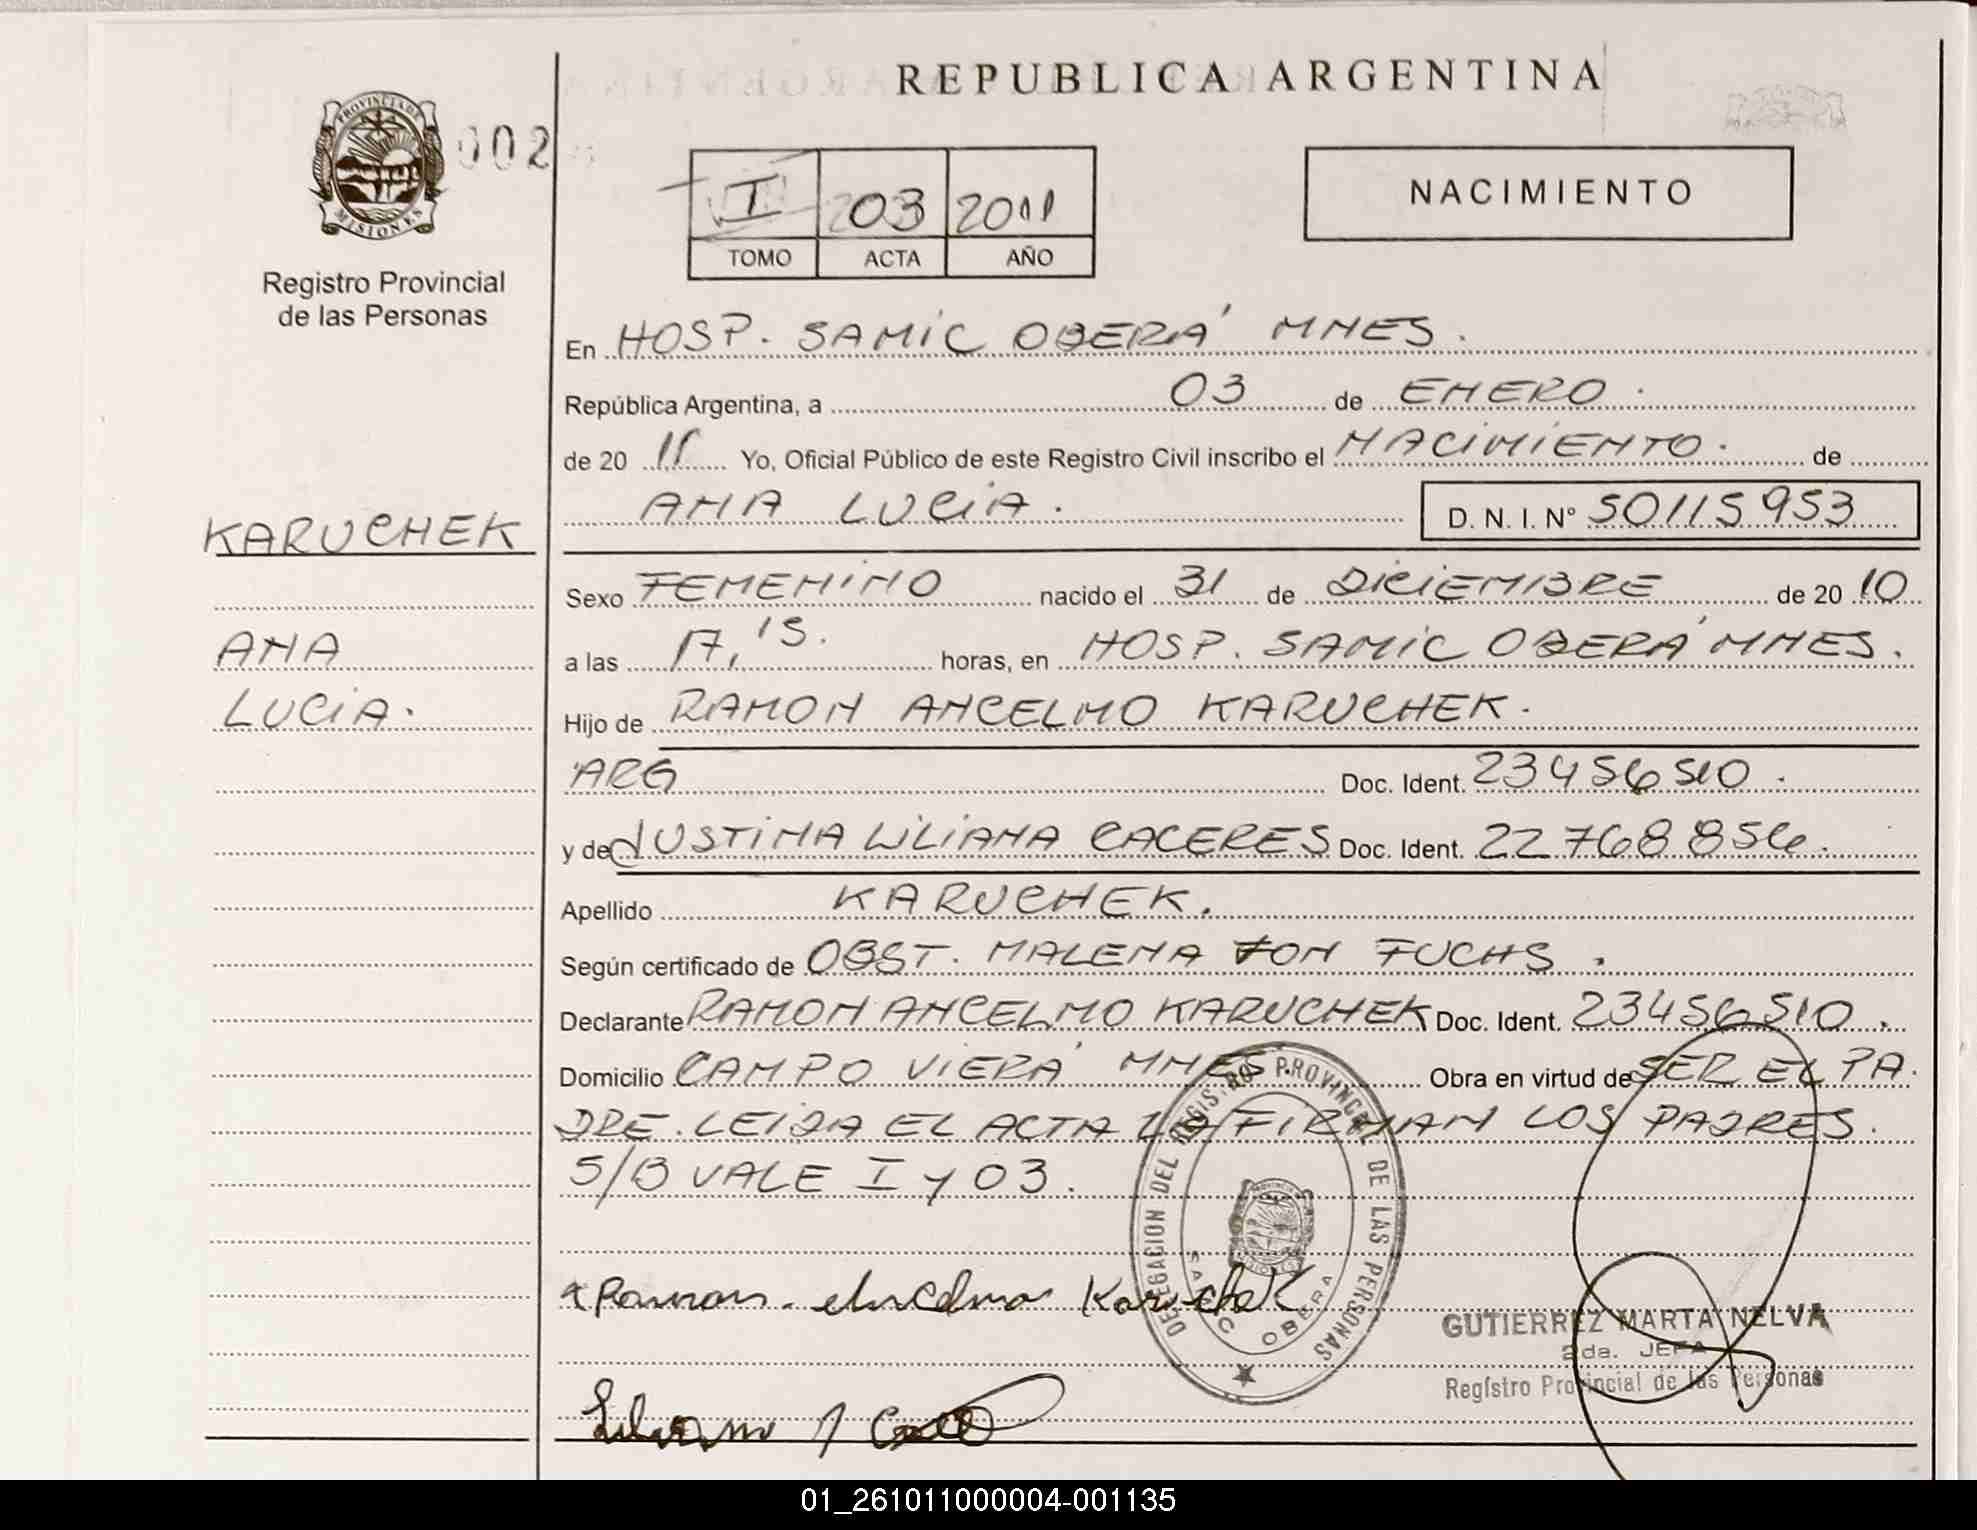 REPUBLICA ARGENTINA
PROVINCIA DE
MISIONES
002
Registro Provincial
de las Personas
I 03 2011
TOMO ACTA AÑO
NACIMIENTO
En HOSP. SAMIC OBERÁ MNES.
República Argentina, a 03 de ENERO.
de 20 11 Yo, Oficial Público de este Registro Civil inscribo el NACIMIENTO. de
ANA LUCIA. D. N. I. N° 50115953
KARUCHEK
ANA
LUCIA.
Sexo FEMENINO nacido el 31 de DICIEMBRE de 20 10
a las 17,15. horas, en HOSP. SAMIC OBERÁ MNES.
Hijo de RAMON ANCELMO KARUCHEK.
ARG Doc. Ident. 23456510.
y de JUSTINA LILIANA CACERES Doc. Ident. 22768856.
Apellido KARUCHEK.
Según certificado de OBST. MALENA FON FUCHS.
Declarante RAMON ANCELMO KARUCHEK Doc. Ident. 23456510.
Domicilio CAMPO VIERA MNES Obra en virtud de SER EL PA
DRE. LEIDA EL ACTA LA FIRMAN LOS PADRES.
S/B VALE I y 03.
DELEGACION DEL REGISTRO PROVINCIAL DE LAS PERSONAS
SAMIC OBERA
Ramon Ancelmo Karuchek
GUTIERREZ MARTA NELVA
2da. JEFA
Registro Provincial de las Personas
01_261011000004-001135